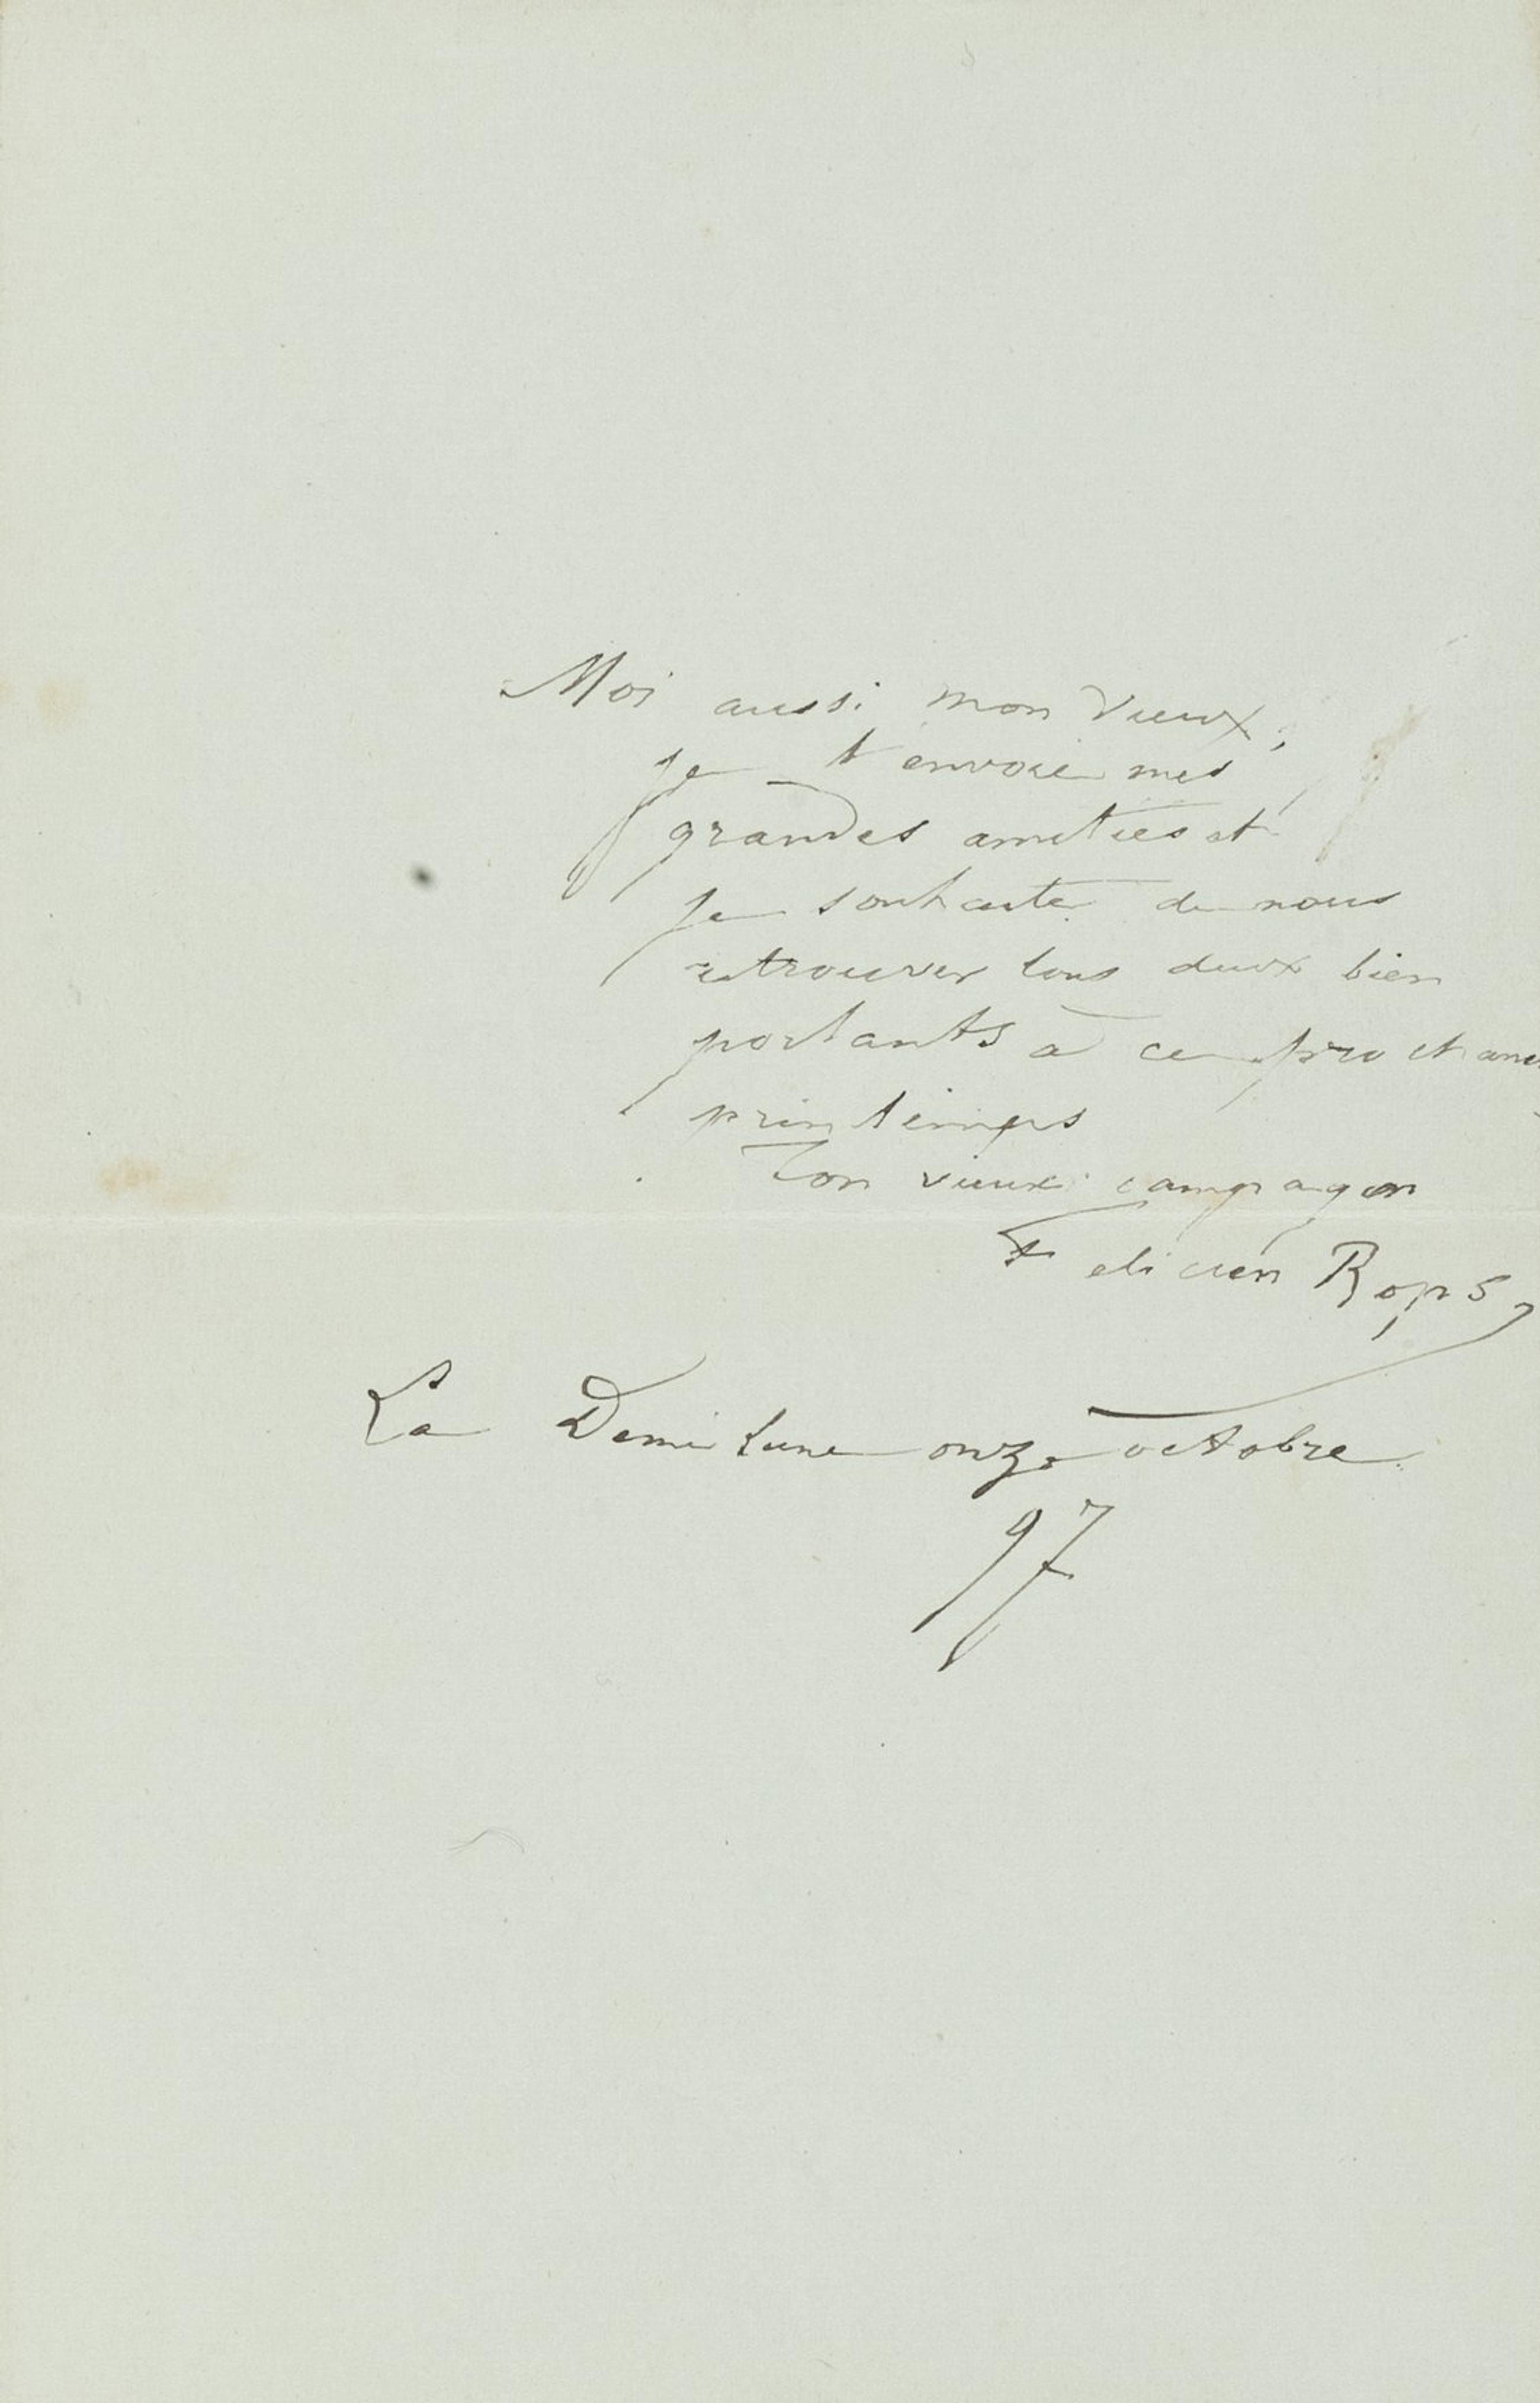 Moi aussi mon vieux,
je t'envoie mes
grandes amitiés et
je souhaite de nous
retrouver tous deux bien
portants à ce prochain
printemps
Ton vieux campagnon
Felicien Rops
La Demi Lune onze octobre
97